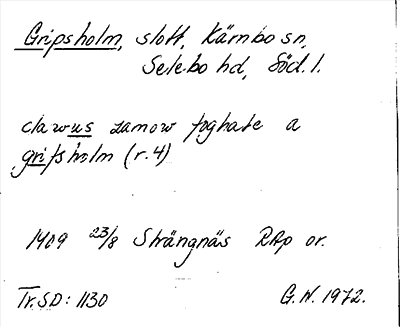 Gripsholm, slott, Kärnbo sn,
Selebo hd, Söd. l.
clawus zamow foghate a
gripsholm (r. 4)
1409 23/8 Strängnäs RAp or.
Tr. SD: 1130 G.N. 1972.